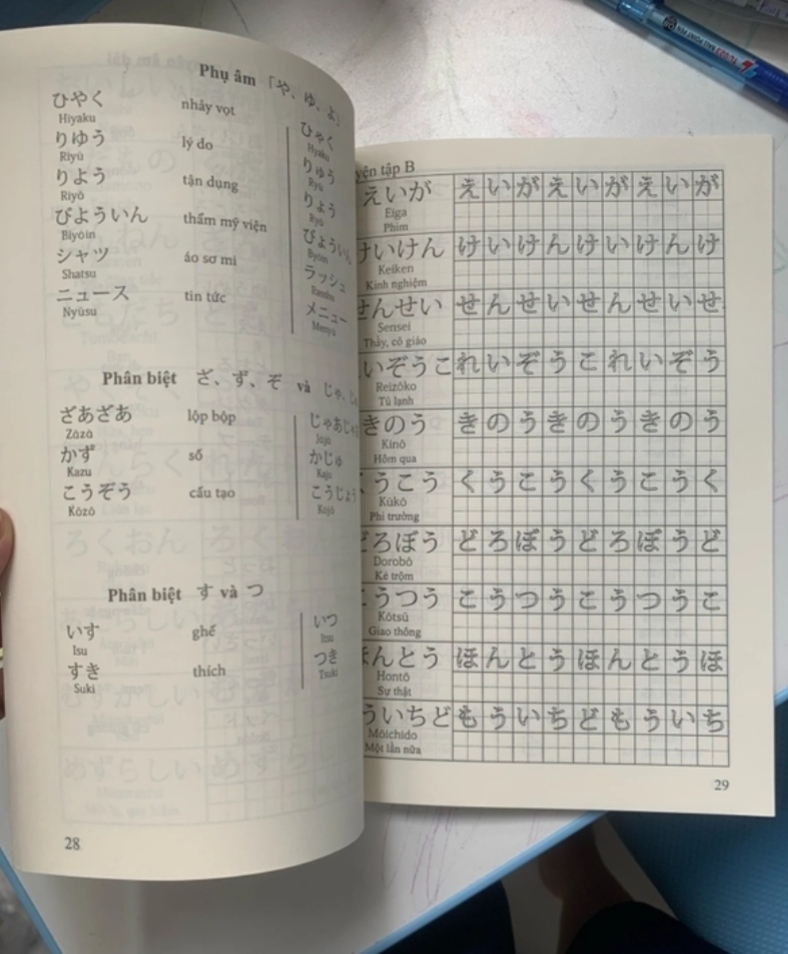 Phụ âm 「や、ゆ、よ」
ひやく nhảy vọt ひゃく
Hiyaku Hyaku
りゆう lý do りゅう
Riyū Ryū
りよう tận dụng りょう
Riyō Ryō
びよういん thẩm mỹ viện びょういん
Biyōin Byōin
シャツ áo sơ mi ラッシュ
Shatsu
ニュース tin tức メニュー
Nyūsu Menyū
Phân biệt ざ、ず、ぞ và じゃ、
ざあざあ lộp bộp じゃあじゃ
Zāzā Jājā
かず số かじゅ
Kazu Kaju
こうぞう cấu tạo こうじょう
Kōzō Kōjō
Phân biệt す và つ
いす ghế いつ
Isu Itsu
すき thích つき
Suki Tsuki
28
yện tập B
えいが えいがえいがえいが
Eiga
Phim
けいけん けいけんけいけんけ
Keiken
Kinh nghiệm
せんせい せんせいせんせいせ
Sensei
Thầy, cô giáo
いぞうこ れいぞうこれいぞう
Reizōko
Tủ lạnh
きのう きのうきのうきのう
Kinō
Hôm qua
うこう くうこうくうこうく
Kūkō
Phi trường
どろぼう どろぼうどろぼうど
Dorobō
Kẻ trộm
こうつう こうつうこうつうこ
Kōtsū
Giao thông
ほんとう ほんとうほんとうほ
Hontō
Sự thật
ういちど もういちどもういち
Mōichido
Một lần nữa
29